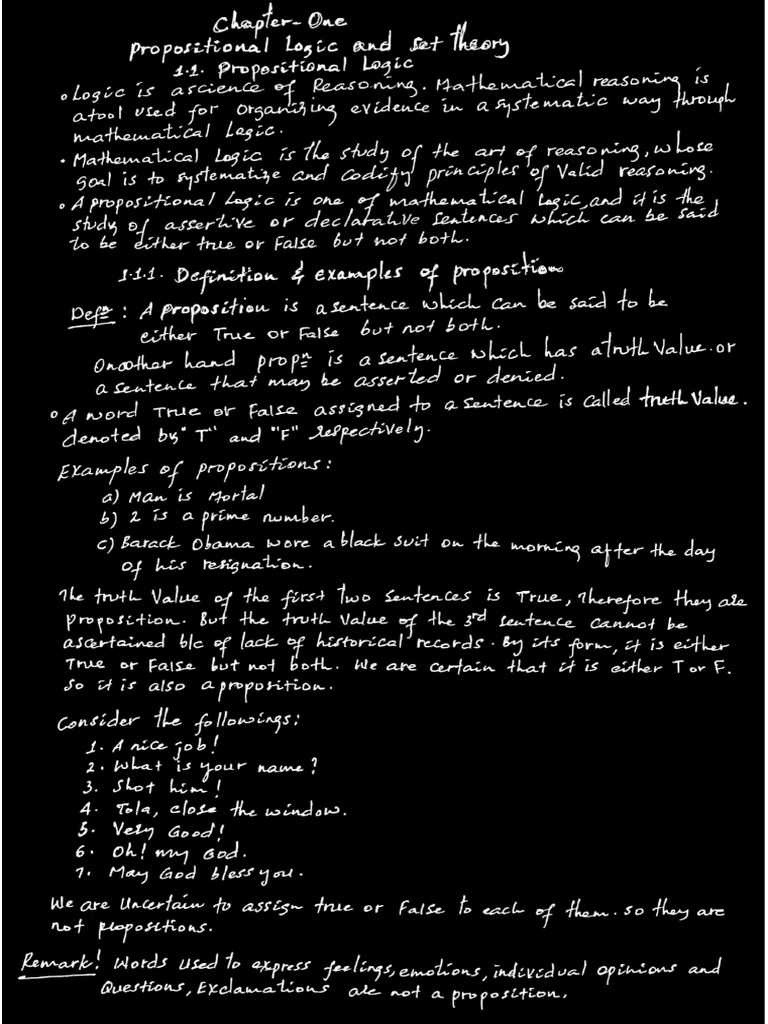 Chapter-One
Propositional Logic and set theory
1.1. Propositional Logic
• Logic is a science of Reasoning. Mathematical reasoning is
a tool used for organizing evidence in a systematic way through
mathematical Logic.
• Mathematical Logic is the study of the art of reasoning, whose
goal is to systematize and codify principles of valid reasoning.
• A propositional Logic is one of mathematical Logic, and it is the
study of assertive or declarative sentences which can be said
to be either true or False but not both.
1.1.1. Definition & examples of proposition
Defn: A proposition is a sentence which can be said to be
either True or False but not both.
On other hand propn is a sentence which has a truth value or
a sentence that may be asserted or denied.
• A word True or False assigned to a sentence is called truth value.
denoted by "T" and "F" respectively.
Examples of propositions:
a) Man is Mortal
b) 2 is a prime number.
c) Barack Obama wore a black suit on the morning after the day
of his resignation.
The truth value of the first two sentences is True, Therefore they are
proposition. But the truth value of the 3rd sentence cannot be
ascertained b/c of lack of historical records. By its form, it is either
True or False but not both. We are certain that it is either T or F.
So it is also a proposition.
Consider the followings:
1. A nice job!
2. What is your name?
3. Shot him!
4. Tola, close the window.
5. Very Good!
6. Oh! my God.
7. May God bless you.
We are Uncertain to assign true or False to each of them. so they are
not propositions.
Remark! Words used to express feelings, emotions, individual opinions and
Questions, Exclamations are not a proposition.